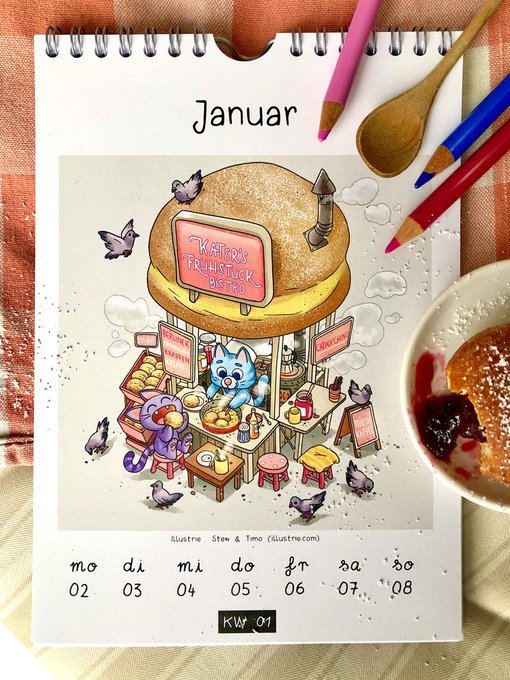 Januar
KATER'S
FRÜHSTÜCK
BISTRO
TO GO
BERLINER
KRAPFEN
CAPPUCCINO
Illustrie Stew & Timo (illustrie.com)
mo di mi do fr sa so
02 03 04 05 06 07 08
KW 01